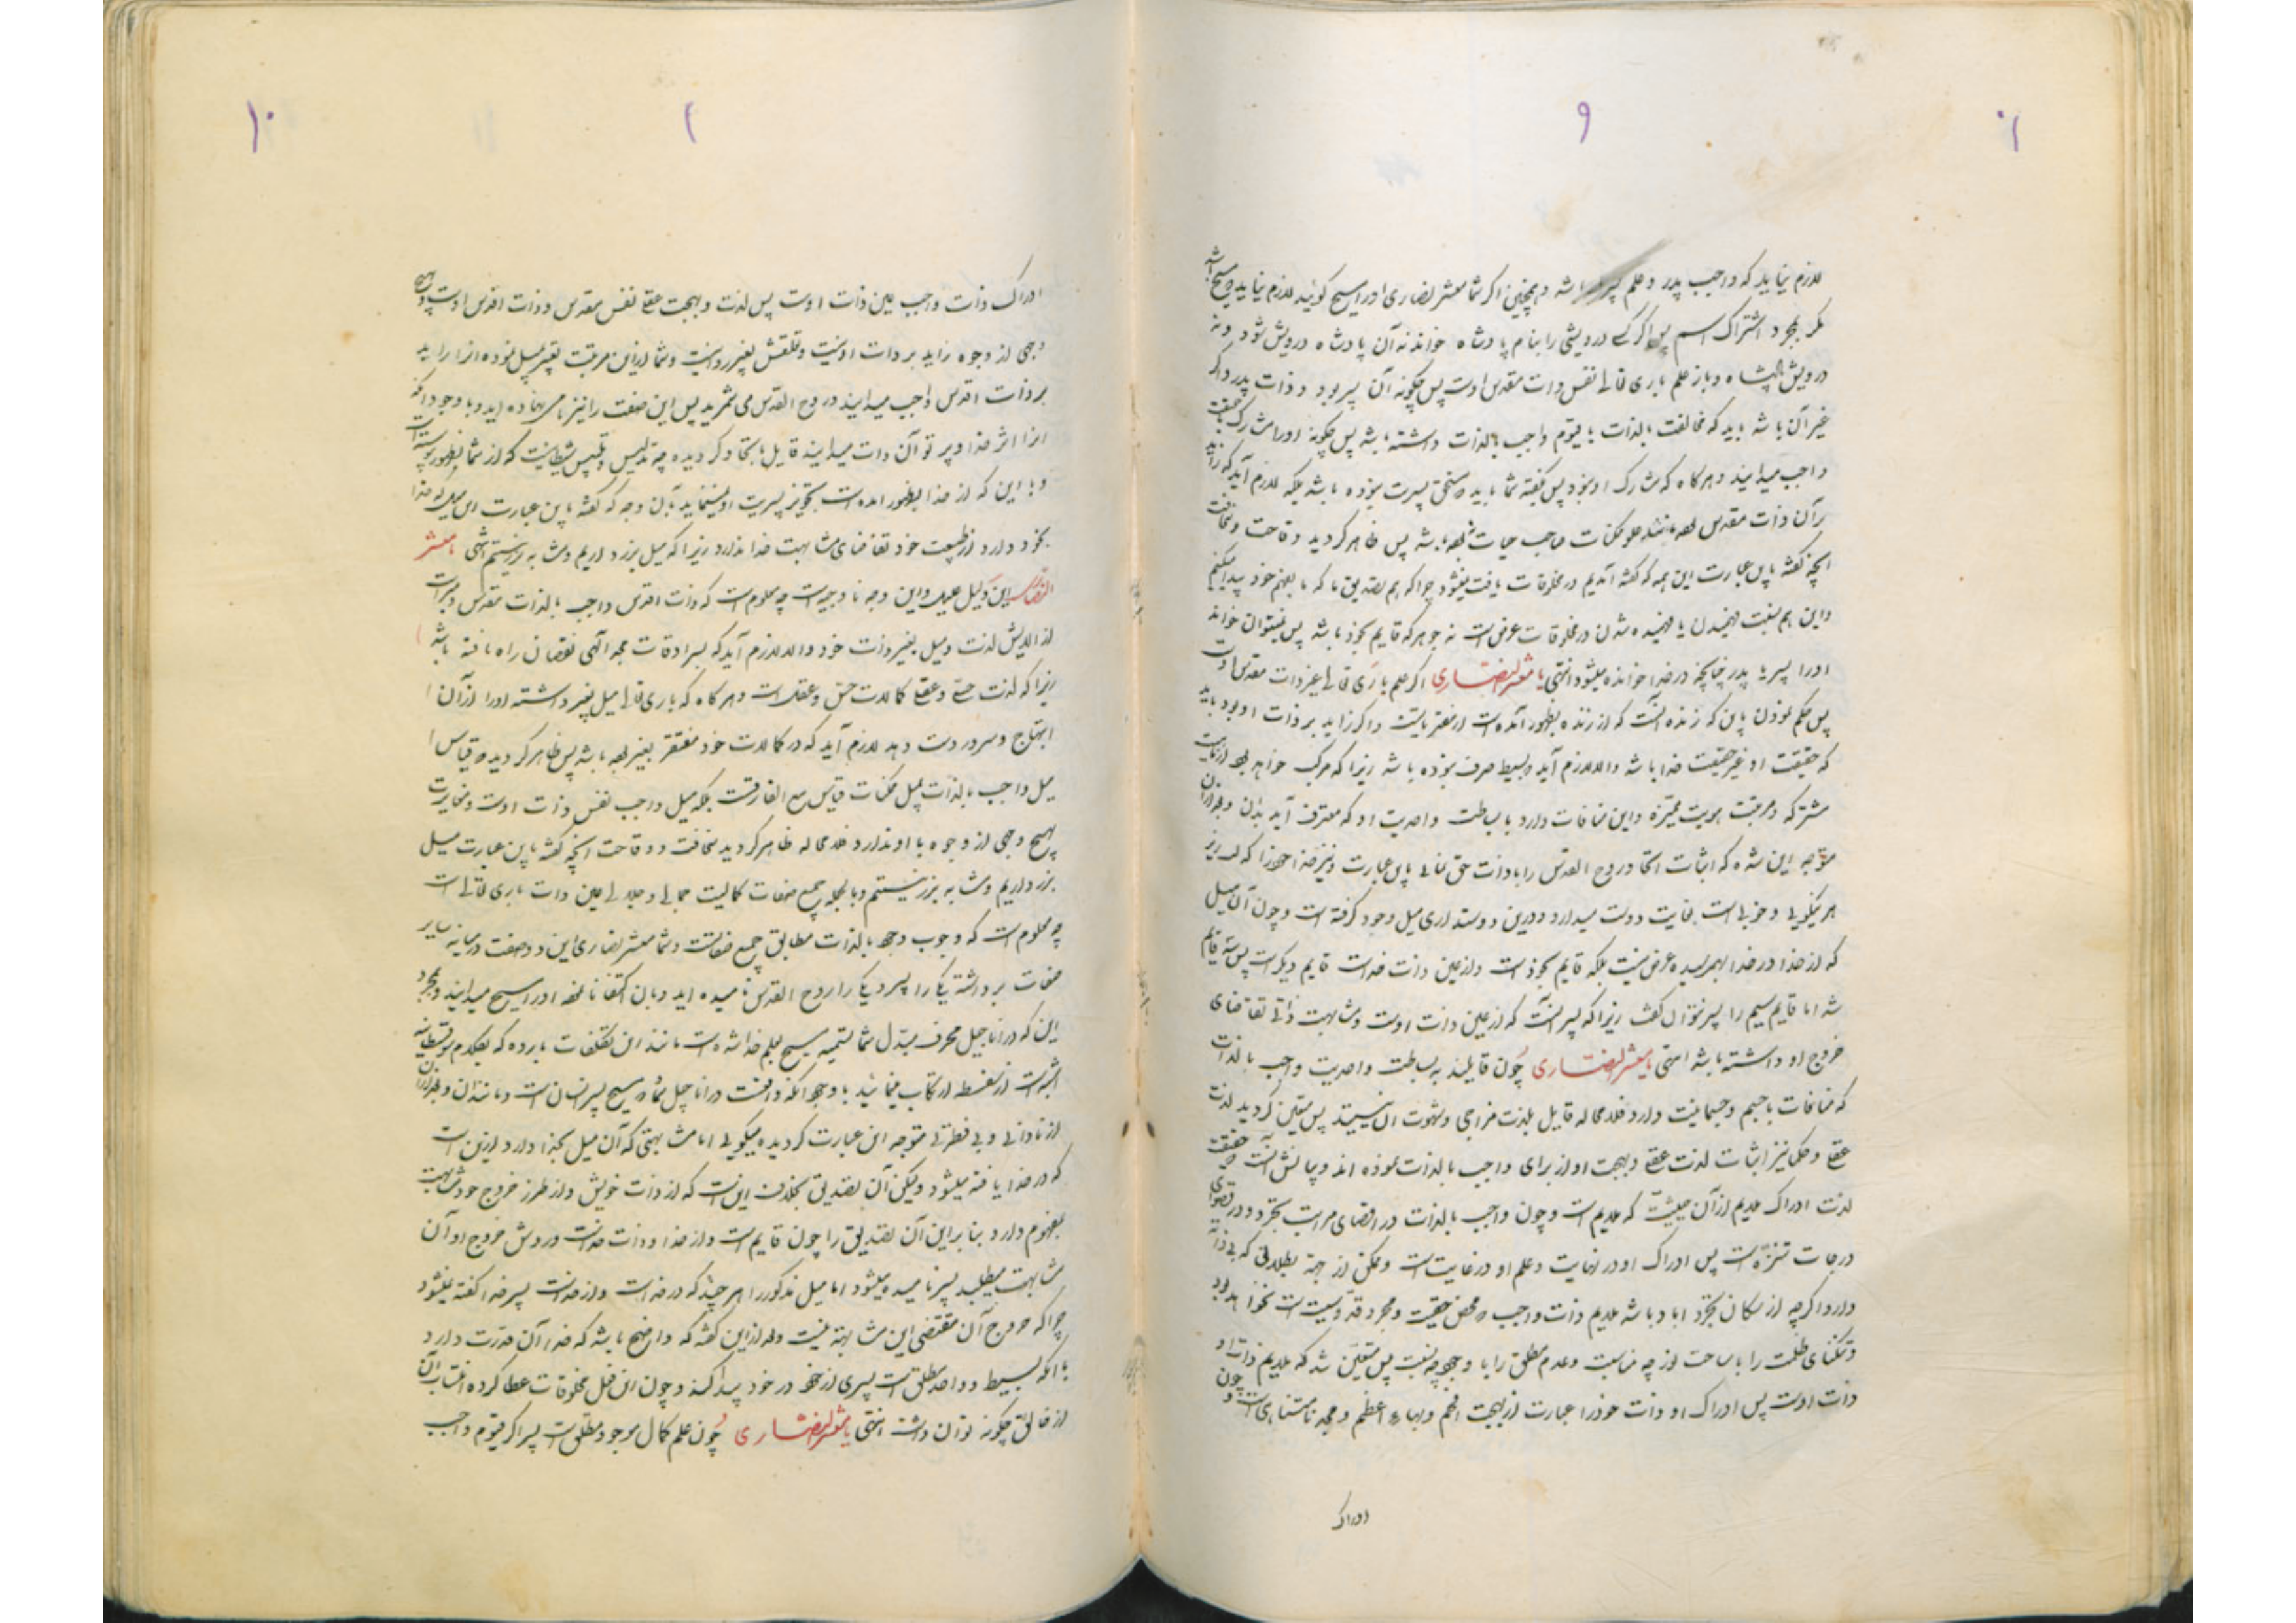 ۹
لازم نیاید که واجب پدر و علم پسر باشه و همچنین اگر شما معشر نصاری اورا مسیح گوئید لازم نیاید که مسیح باشه
مگر بمجرد اشتراک اسم پس اگر کسی درویشی را بنام پادشاه خواند نه آن پادشاه درویش شود و نه
درویش پادشاه و باز علم باری تعالی نفس ذات مقدس اوست پس چگونه آن پسر بود و ذات پدر و اگر
غیر آن باشه باید که مخالفت بالذات با قیوم واجب بالذات داشته باشه پس چگونه اورا مشارک حقیقت
واجب میدانید و هرگاه که مشارک او نبود پس بگفته شما باید مستحق پسریت نبوده باشه بلکه لازم آید که زاید
بر آن ذات مقدس بوده مانند علوم ممکنات صاحب حیات بوده باشه پس ظاهر گردید وقاحت و سخافت
آنچه گفته باین عبارت این همه که گفته آمدیم در مخلوقات یافت میشود چرا که هم تصدیق ما که ما بفهم خود پیدا میکنیم
و این هم نسبت فهمیدن یا فهمیده شدن در مخلوقات عرض است نه جوهر که قایم بخود باشه پس نمیتوان خواند
اورا پسر یا پدر چنانچه در خدا خوانده میشود انتهی یا معشر النصاری اگر علم باری تعالی غیر ذات مقدس اوست
پس حکم نمودن باین که زنده آنست که از زنده بظهور آمده است از مفتریاتست و اگر زاید بر ذات او بود باید
که حقیقت او غیر حقیقت خدا باشه والا لازم آید بسیط صرف نبوده باشه زیرا که مرکب خواهد بود از ماهیت
مشترکه و مرتبت هویت ممیزه و این منافات دارد با بساطت و احدیت او که معترف آید بدان
متوجه این شده که اثبات اتحاد روح القدس را با ذات حق تعالی باین عبارت و نیز خدا خود را که لبریز
هر نیکویی و خوبی است بغایت دوست میدارد و درین دوستداری میل وجود گرفته است و چون آن میل
که از خدا در خدا بهم رسیده عرض نیست بلکه قایم بخود است و از عین ذات خداست قایم دیگر است پس سه قایم
شد اما قایم سیم را پسر نتوان گفت زیرا که پسر آنست که از عین ذات اوست و مشابهت ذاتی تقاضای
خروج او داشته باشه انتهی یا معشر النصاری چون قایلند به بساطت و احدیت واجب بالذات
که منافات با جسم و جسمانیت دارد فلامحاله قایل بلذت مزاجی و شهوت آن نیستند پس متعین گردید لذت
عقلی و حکما نیز اثبات لذت عقلی و بهجت او از برای واجب بالذات نموده اند و بیانش آنست که حقیقت
لذت ادراک ملایم از آن حیثیت که ملایم است و چون واجب بالذات در اقصای مراتب تجرد و در قصوای
درجات تنزه است پس ادراک او در نهایت و علم او در غایت است و ممکن از جهت بطلانی که بی ذاته
دارد اگرچه از سکان تجرد اباد باشه ملایم ذات واجب محض حقیقت و مجرد قدوسیت است نخواهد بود
و تنگنای ظلمت را با ساحت نور چه مناسبت و عدم مطلق را با وجود چه نسبت پس متعین شد که ملایم ذات او
ذات اوست پس ادراک او ذات خود را عبارت از بهجت افخم و بهاء اعظم و مجد نامتناهی است و چون
ادراک
۱۰
ادراک ذات واجب عین ذات اوست پس لذت و بهجت عقلی نفس مقدس و ذات اقدس اوست و بهیچ
وجهی از وجوه زاید بر ذات او نیست و تعلقش بغیر روا نیست و شما ازین مرتبت تعبیر بمیل نموده آنرا زاید
بر ذات اقدس واجب میدانید و روح القدس می شمرید پس این صفت را نیز نامی نهاده اید و با وجود آنکه
آنرا اثر خدا و پرتو آن ذات میدانید قایل باتحاد گردیده چه تدلیس و تلبیس شیطانیت که از شما بظهور پیوسته است
و با این که از خدا بظهور آمده است تجویز پسریت او نمینمایید بآن وجه که گفته باین عبارت این میل که خدا
بخود دارد از طبیعت خود تقاضای مشابهت خدا ندارد زیرا که میل بزر داریم و مشابه بزر نیستم انتهی یا معشر
النصاری این دلیل علیل و این وجه ناوجیه است چه معلوم است که ذات اقدس واجب بالذات مقدس و مبراست
از آلایش لذت و میل بغیر ذات خود والا لازم آید که بسرادقات مجد الهی نقصان راه یافته باشه
زیرا که لذت حسی و عقلی کمالات حس و عقلست و هرگاه که باری تعالی میل بغیر داشته اورا از آن
ابتهاج و سرور دست دهد لازم آید که در کمالات خود مفتقر بغیر بوده باشه پس ظاهر گردیده قیاس
میل واجب بالذات بمیل ممکنات قیاس مع الفارقست بلکه میل واجب نفس ذات اوست و مغایرت
بهیچ وجهی از وجوه با او ندارد فلامحاله ظاهر گردید سخافت و وقاحت آنچه گفته باین عبارت میل
بزر داریم و مشابه بزر نیستم و بالجمله جمیع صفات کمالیت جمالی و جلالی عین ذات باری تعالی است
چه معلوم است که وجوب وجود بالذات مطابق جمیع صفاتست و شما معشر نصاری این دو صفت در میانه سایر
صفات برداشته یکی را پسر و یکی را روح القدس نامیده اید و بآن اکتفا ننموده اورا مسیح میدانید و بمجرد
این که در اناجیل محرف مبدل شما تسمیه مسیح بعلم خدا شده است مانند این تکلفات بارده که بکلام سوفسطائیه
اشبه است از سفسطه ارتکاب مینمایند با وجود آنکه واقعست در اناجیل شما مسیح پسر انسان است و مانند آن
از نادانی و بی فطرتی متوجه این عبارت گردیده میگوئی اما مشابهتی که آن میل بخدا دارد ازین است
که در خدا یافته میشود ولیکن آن تصدیق بخلاف این است که از ذات خویش و از طرز خروج خود مشابهت
بمفهوم دارد بنابراین آن تصدیق را چون قایم است و از خدا و ذات خداست و روش خروج او آن
مشابهت میطلبد پسر نامیده میشود اما میل مذکور را هر چند که در خداست و از خداست پسر خدا گفته نمیشود
چرا که خروج آن مقتضی این مشابهت نیست و بعد ازین گفته که واضح باشه که خدا آن قدرت دارد
با آنکه بسیط و واحد مطلق است پسری از خود در خود پیدا کند و چون این فعل مخلوقات عطا کرده انتساب آن
از خالق چگونه توان داشت انتهی یا معشر النصاری چون علم کمال موجود مطلق است پس اگر قیوم واجب